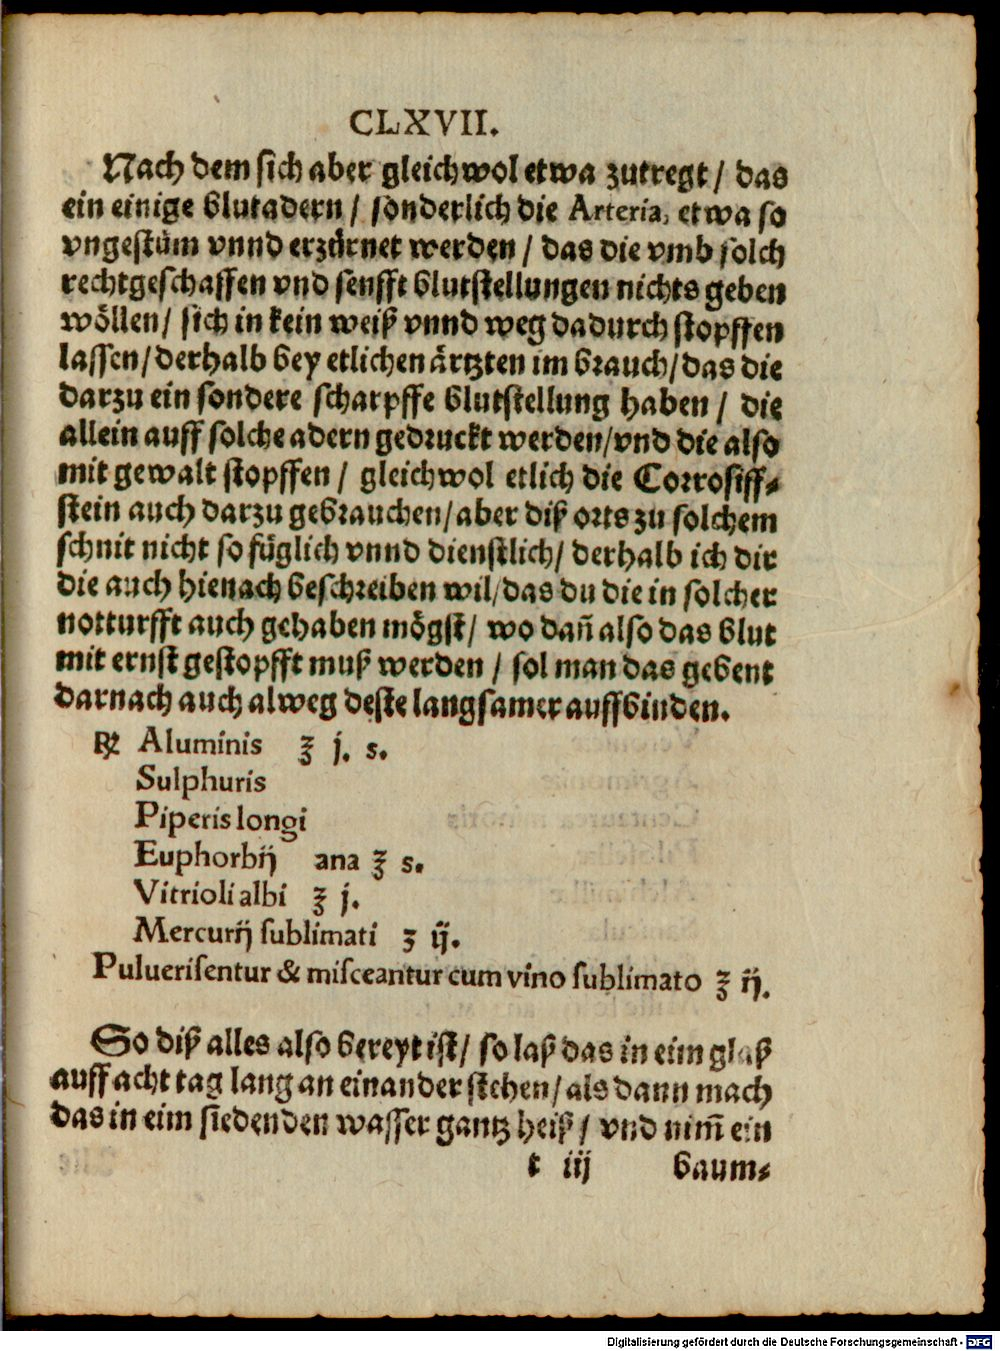 CLXVII.
Nach dem sich aber gleichwol etwa zutregt / das
ein einige blutadern / sonderlich die Arteria, etwa so
vngestüm vnnd erzürnet werden / das die vmb solch
rechtgeschaffen vnd senfft blutstellungen nichts geben
wöllen / sich in kein weiß vnnd weg dadurch stopffen
lassen / derhalb bey etlichen ärtzten im brauch / das die
darzu ein sondere scharpffe blutstellung haben / die
allein auff solche adern gedruckt werden / vnd die also
mit gewalt stopffen / gleichwol etlich die Corrosiff⸗
stein auch darzu gebrauchen / aber diß orts zu solchem
schnit nicht so füglich vnnd dienstlich / derhalb ich dir
die auch hienach beschreiben wil / das du die in solcher
notturfft auch gehaben mögst / wo dañ also das blut
mit ernst gestopfft muß werden / sol man das gebent
darnach auch alweg deste langsamer auffbinden.
℞ Aluminis ʒ j. s.
Sulphuris
Piperis longi
Euphorbij ana ʒ s.
Vitrioli albi ʒ j.
Mercurij sublimati ʒ ij.
Puluerisentur & misceantur cum vino sublimato ʒ ij.
So diß alles also bereyt ist / so laß das in eim glaß
auff acht tag lang an einander stehen / als dann mach
das in eim siedenden wasser gantz heiß / vnd nim̃ ein
t iij baum⸗
Digitalisierung gefördert durch die Deutsche Forschungsgemeinschaft - DFG